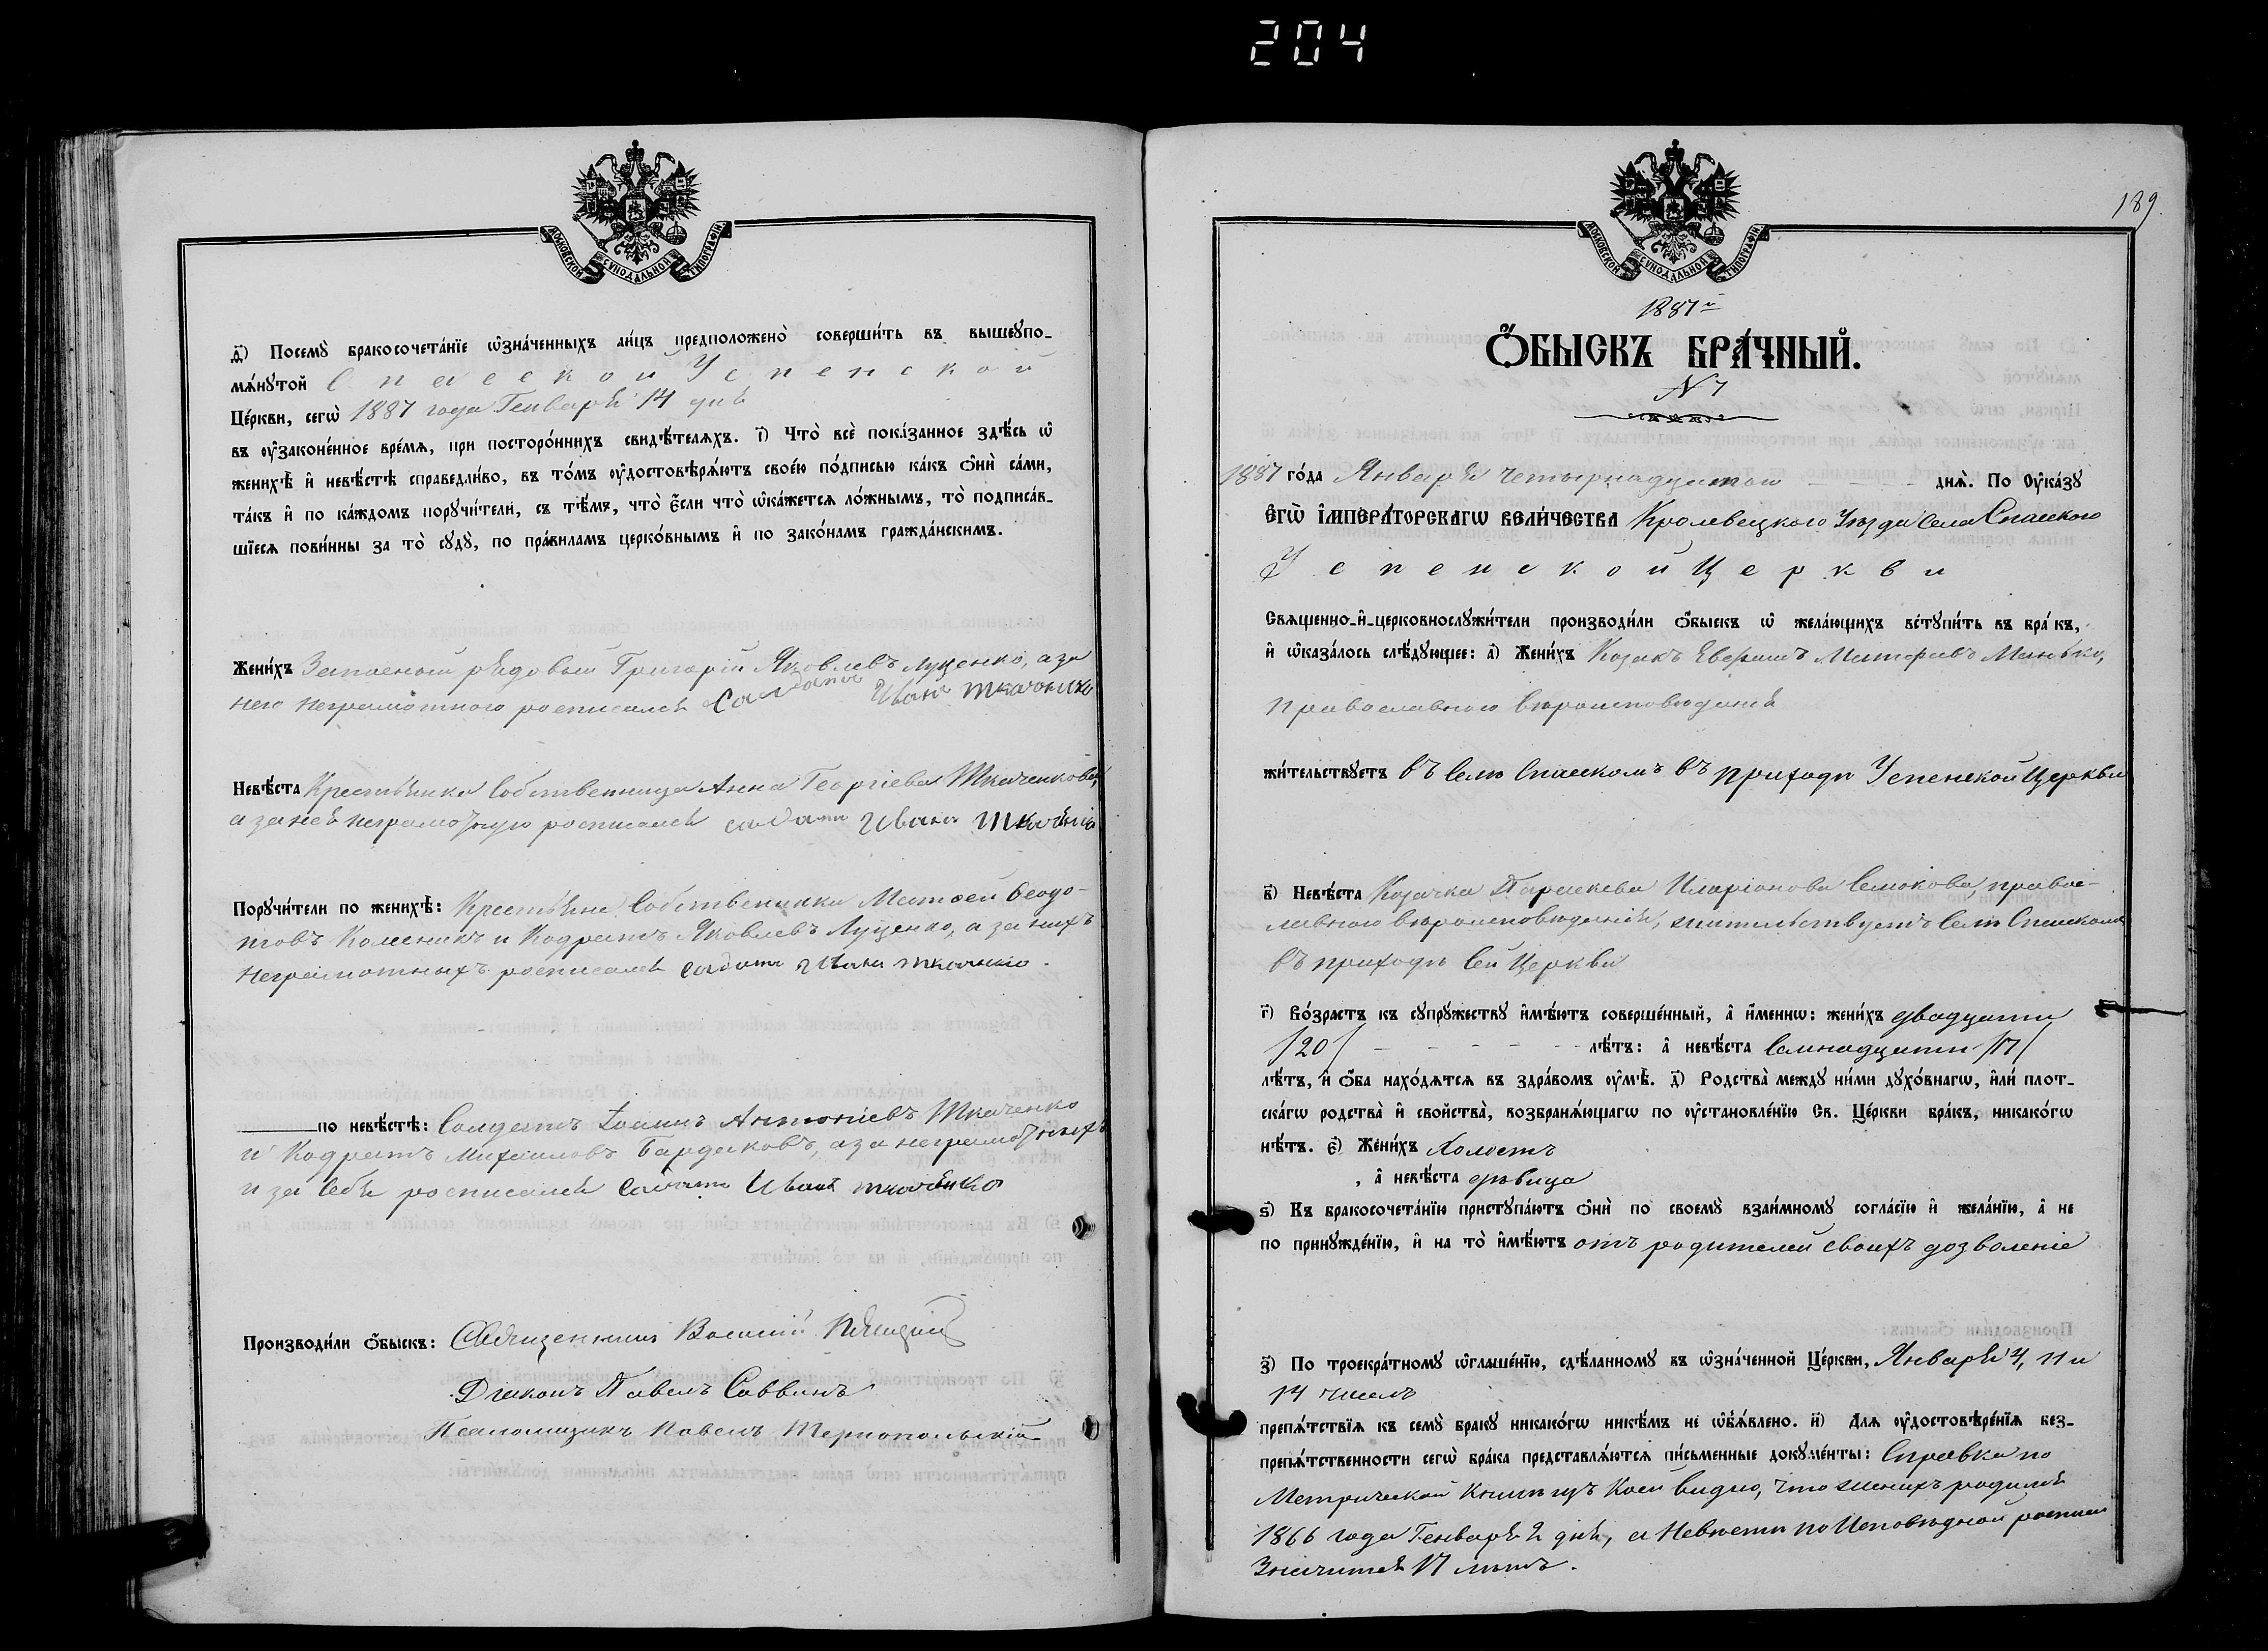 204
МОСКОВСКОЙ СУНОДАЛЬНОЙ ТИПОГРАФІИ
д҃) Посемꙋ̀ бракосочета́нїе ѿзна́ченныхъ ли́цъ предположено̀ соверши́ть въ вышеꙋпо-
мѧ́нꙋтой Спасской Успенской
Це́ркви, сегѡ̀ 1887 года Генваря 14 дня
въ ᲂу҆законе́нное вре́мѧ, при посторо́ннихъ свидѣ́телѧхъ. і҃) Что̀ всѐ пока́занное здѣ́сь ѡ҆
женихѣ̀ и҆ невѣ́стѣ справедли́во, въ то́мъ ᲂу҆достовѣрѧ́ютъ свое́ю по́дписью ка́къ ѻ҆нѝ са́ми,
та́къ и҆ по ка́ждомъ порꙋчи́тели, съ тѣ́мъ, что̀ є҆́сли что̀ ѡ҆ка́жетсѧ ло́жнымъ, то̀ подписа́в-
шїесѧ пови́нны за то̀ сꙋдꙋ̀, по пра́виламъ церко́внымъ и҆ по зако́намъ гражда́нскимъ.
Жени́хъ Запасный рядовый Григорій Яковлевъ Луценко, а за
него неграмотного росписался Салдатъ Иванъ ткаченко
Невѣ́ста Крестьянка Собственница Анна Георгіева Ткаченкова,
а за нея неграмотную росписался садатъ Иванъ Ткаченко
Порꙋчи́тели по женихѣ̀: Крестьяне Собственники Матөей Өеодо-
товъ Коменикъ и Кодратъ Яковлевъ Луценко, а за нихъ
неграмотныхъ росписался садатъ Иванъ ткаченко.
по невѣ́стѣ: Солдатъ Іоаннъ Антоніевъ Ткаченко
и Кодратъ Михаиловъ Бардаковъ, а за неграмотныхъ
и за себя росписался Садатъ Иванъ ткаченко
Производи́ли ѻ҆́быскъ: Священникъ Василій
Діаконъ Павелъ Саввинъ
Псаломщикъ Павелъ Тернопольскій
189.
МОСКОВСКОЙ СУНОДАЛЬНОЙ ТИПОГРАФІИ
1887й
Ѻ҆́БЫСКЪ БРА́ЧНЫЙ.
N 7
1887 го́да Января четырнадцатаго - - - - днѧ̀. По Оу҆ка́зꙋ
Є҆ГѠ̀ І҆МПЕРА́ТОРСКАГѠ ВЕЛИ́ЧЕСТВА Кролевецкого Уѣзда Села Спасского
Успенской Церкви
Свѧщенно-и҆-церковнослꙋжи́тели производи́ли ѻ҆́быскъ ѡ҆ жела́ющихъ встꙋпи́ть въ бра́къ,
и҆ ѡ҆каза́лось слѣ́дꙋющее: а҃) Жени́хъ Козакъ Матфеевъ Манько,
православного вѣроисповѣданія
жи́тельствꙋетъ въ Селѣ Спасскомъ въ приходѣ Успенской Церкви
в҃) Невѣ́ста Козачка Параскева Иларіонова Семокова, правос-
лавного вѣроисповѣданія, жительствуетъ Селѣ Спасскомъ
въ приходѣ Сей Церкви
г҃) Во́зрастъ къ сꙋпрꙋ́жествꙋ и҆мѣ́ютъ соверше́нный, а҆ и҆́меннѡ: жени́хъ двадцати
/20/ - - - - - лѣ́тъ: а҆ невѣ́ста Семнадцати /17/
лѣ́тъ, и҆ ѻ҆́ба нахо́дѧтсѧ въ здра́вомъ ᲂу҆мѣ̀. д҃) Родства̀ междꙋ ни́ми дꙋхо́внагѡ, и҆лѝ плот-
ска́гѡ родства̀ и҆ свойства̀, возбранѧ́ющагѡ по ᲂу҆становле́нїю Св. Це́ркви бра́къ, никако́гѡ
нѣ́тъ. є҃) Жени́хъ Холостъ
, а҆ невѣ́ста дѣвица
ѕ҃) Къ бракосочета́нїю пристꙋпа́ютъ ѻ҆нѝ по своемꙋ̀ взаи́мномꙋ согла́сїю и҆ жела́нїю, а҆ не
по принꙋжде́нїю, и҆ на то̀ и҆мѣ́ютъ отъ родителей своихъ дозволеніе
з҃) По троекра́тномꙋ ѡ҆глаше́нїю, сдѣ́ланномꙋ въ ѡ҆зна́ченной Це́ркви, Января 4, 11 и
14 чиселъ
препѧ́тствїѧ къ семꙋ̀ бракꙋ никако́гѡ никѣ́мъ не ѡ҆б̾ѧ́влено. и҃) Длѧ ᲂу҆достовѣре́нїѧ без-
препѧ́тственности сегѡ̀ бра́ка представлѧ́ютсѧ пи́сьменные докꙋме́нты: Справка по
Метрической Книги изъ коей видно, что женихъ родился
1866 года Генваря 2 дня, а Невѣста по Исповѣдной росписи
Значится 17 лѣтъ.